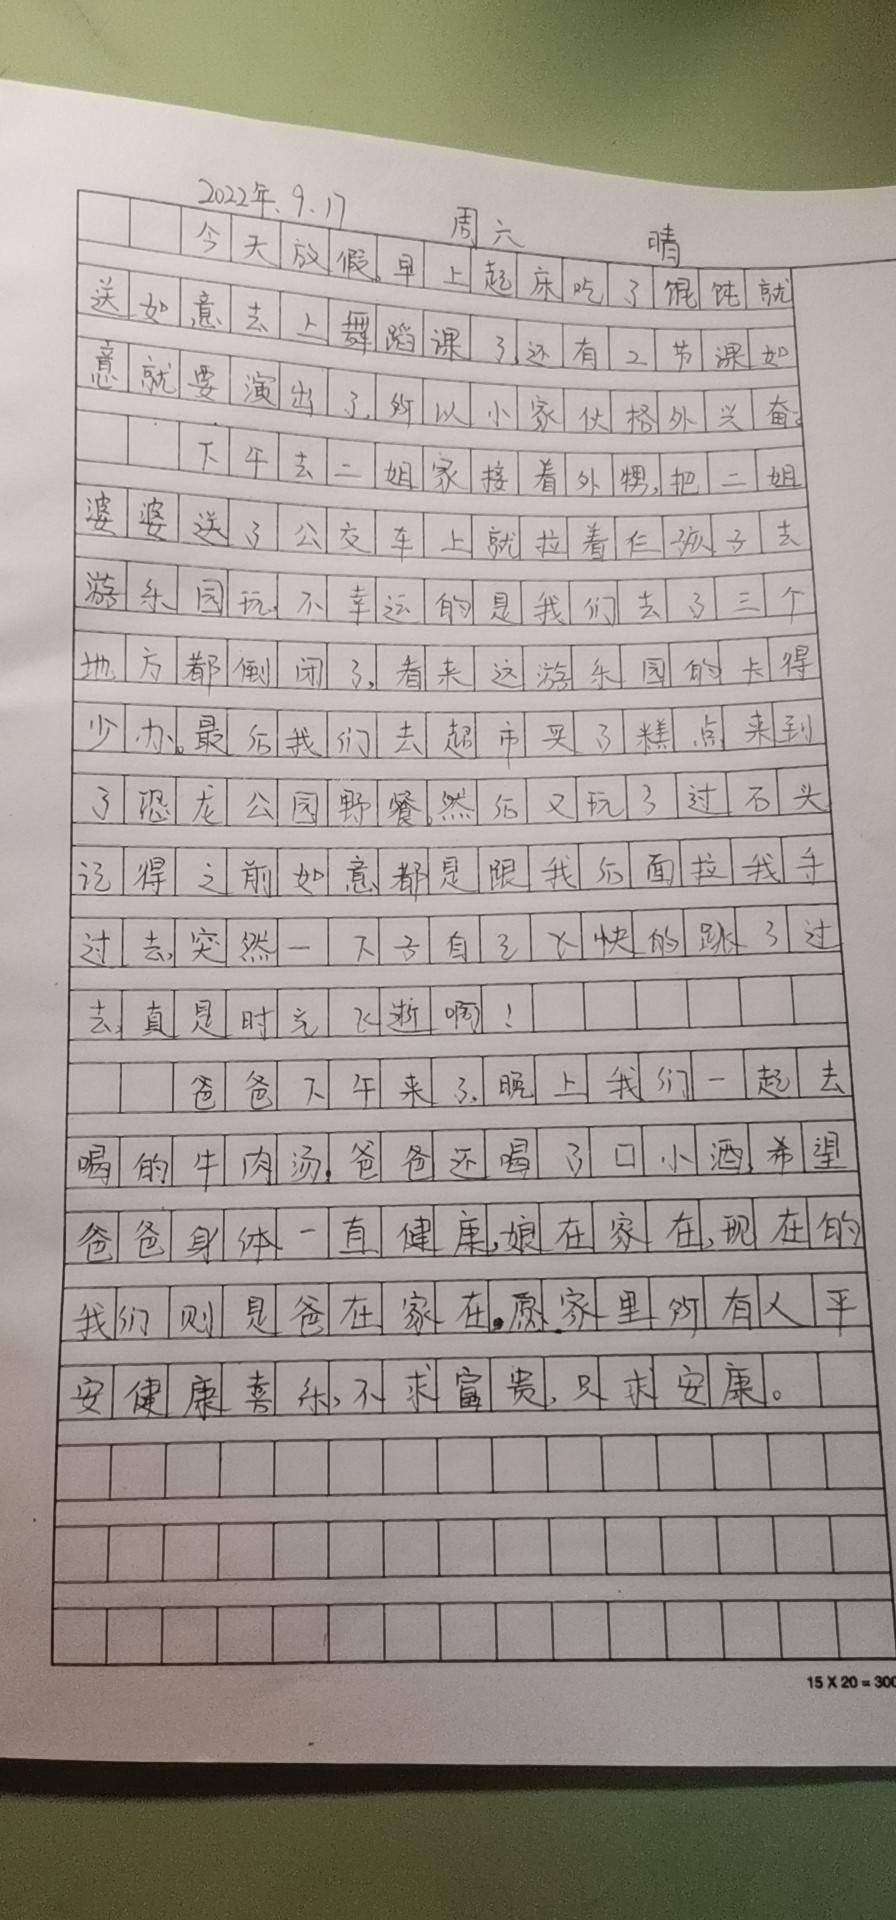 2022年.9.17 周六 晴
今天放假。早上起床吃了馄饨就
送如意去上舞蹈课了,还有2节课如
意就要演出了,所以小家伙格外兴奋。
下午去二姐家接着外甥,把二姐
婆婆送了公交车上就拉着仨孩子去
游乐园玩,不幸运的是我们去了三个
地方都倒闭了,看来这游乐园的卡得
少办。最后我们去超市买了糕点来到
了恐龙公园野餐。然后又玩了过石头
记得之前如意都是跟我后面拉我手
过去,突然一下子自己飞快的跳了过
去,真是时光飞逝啊!
爸爸下午来了,晚上我们一起去
喝的牛肉汤,爸爸还喝了口小酒,希望
爸爸身体一直健康,娘在家在,现在的
我们则是爸在家在。愿家里所有人平
安健康喜乐,不求富贵,只求安康。
15 X 20 = 300